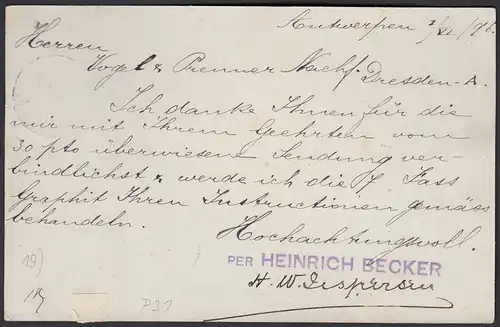 Antwerpen 2/XI/96.
Herren
Vogel & Prenner Nachf. Dresden-A.
Ich danke Ihnen für die
mir mit Ihrem Geehrten vom
30 pto überwiesene Sendung ver-
bindlichst & werde ich die 7 Fass
Graphit Ihren Instructionen gemäss
behandeln.
Hochachtungsvoll.
PER HEINRICH BECKER
H. W. Jespersen
19)
P31